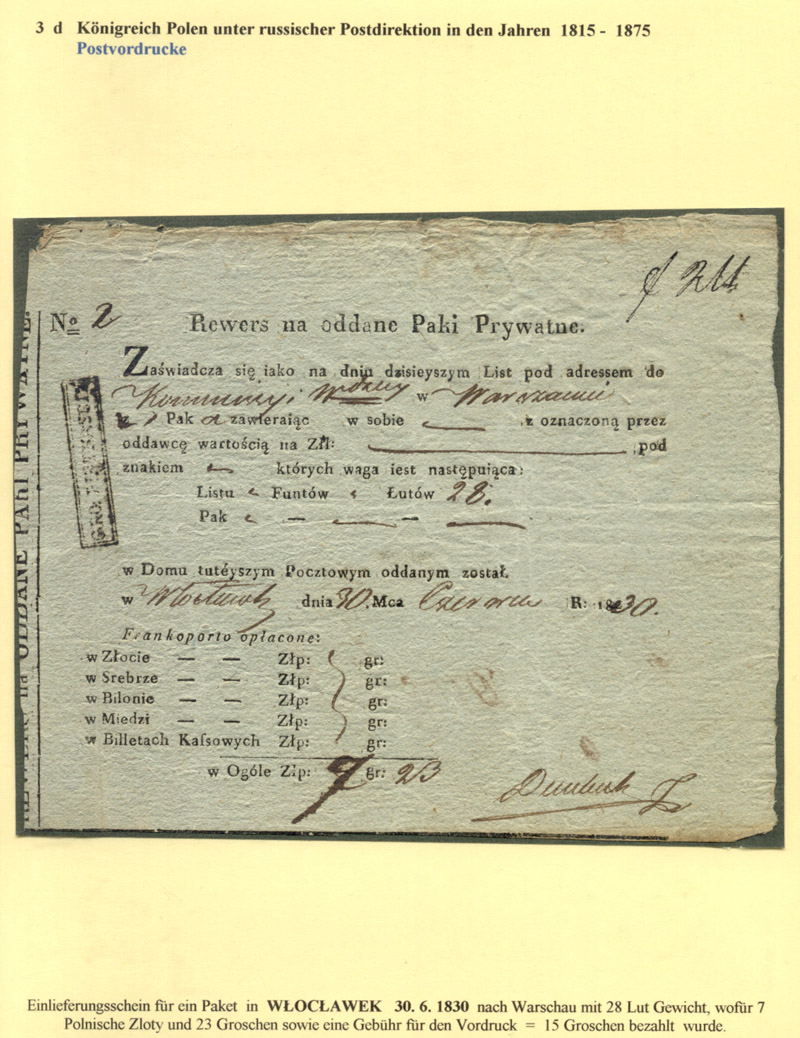 3 d Königreich Polen unter russischer Postdirektion in den Jahren 1815 - 1875
Postvordrucke
No 2 Rewers na oddane Paki Prywatne.
Zaświadcza się iako na dniu dzisieyszym List pod adressem do
w Warszawie
z Pak a zawieraiąc w sobie z oznaczoną przez
oddawcę wartością na Złł: pod
znakiem których waga iest następuiąca:
Listu Funtów Łutów 28.
Pak — —
w Domu tutéyszym Pocztowym oddanym został.
w Włocławek dnia 30. Mca Czerwca R: 1830.
Frankoporto opłacone:
w Złocie — — Złp: gr:
w Srebrze — — Złp: gr:
w Bilonie — — Złp: gr:
w Miedzi — — Złp: gr:
w Billetach Kassowych Złp: gr:
w Ogóle Złp: 7 gr: 23
REWERS na ODDANE PAKI PRYWATNE.
Einlieferungsschein für ein Paket in WŁOCŁAWEK 30. 6. 1830 nach Warschau mit 28 Lut Gewicht, wofür 7
Polnische Zloty und 23 Groschen sowie eine Gebühr für den Vordruck = 15 Groschen bezahlt wurde.